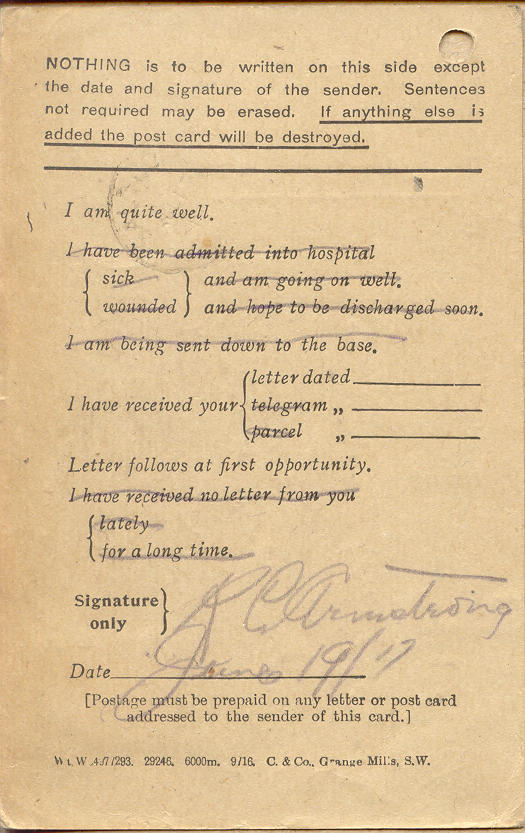 NOTHING is to be written on this side except
the date and signature of the sender. Sentences
not required may be erased. If anything else is
added the post card will be destroyed.
I am quite well.
I have been admitted into hospital
sick and am going on well.
wounded and hope to be discharged soon.
I am being sent down to the base.
letter dated
I have received your telegram „
parcel „
Letter follows at first opportunity.
I have received no letter from you
lately
for a long time.
Signature
only
Armstrong
Date June 19/17
[Postage must be prepaid on any letter or post card
addressed to the sender of this card.]
29246. 6000m. 9/16. C. & Co., Grange Mills, S.W.